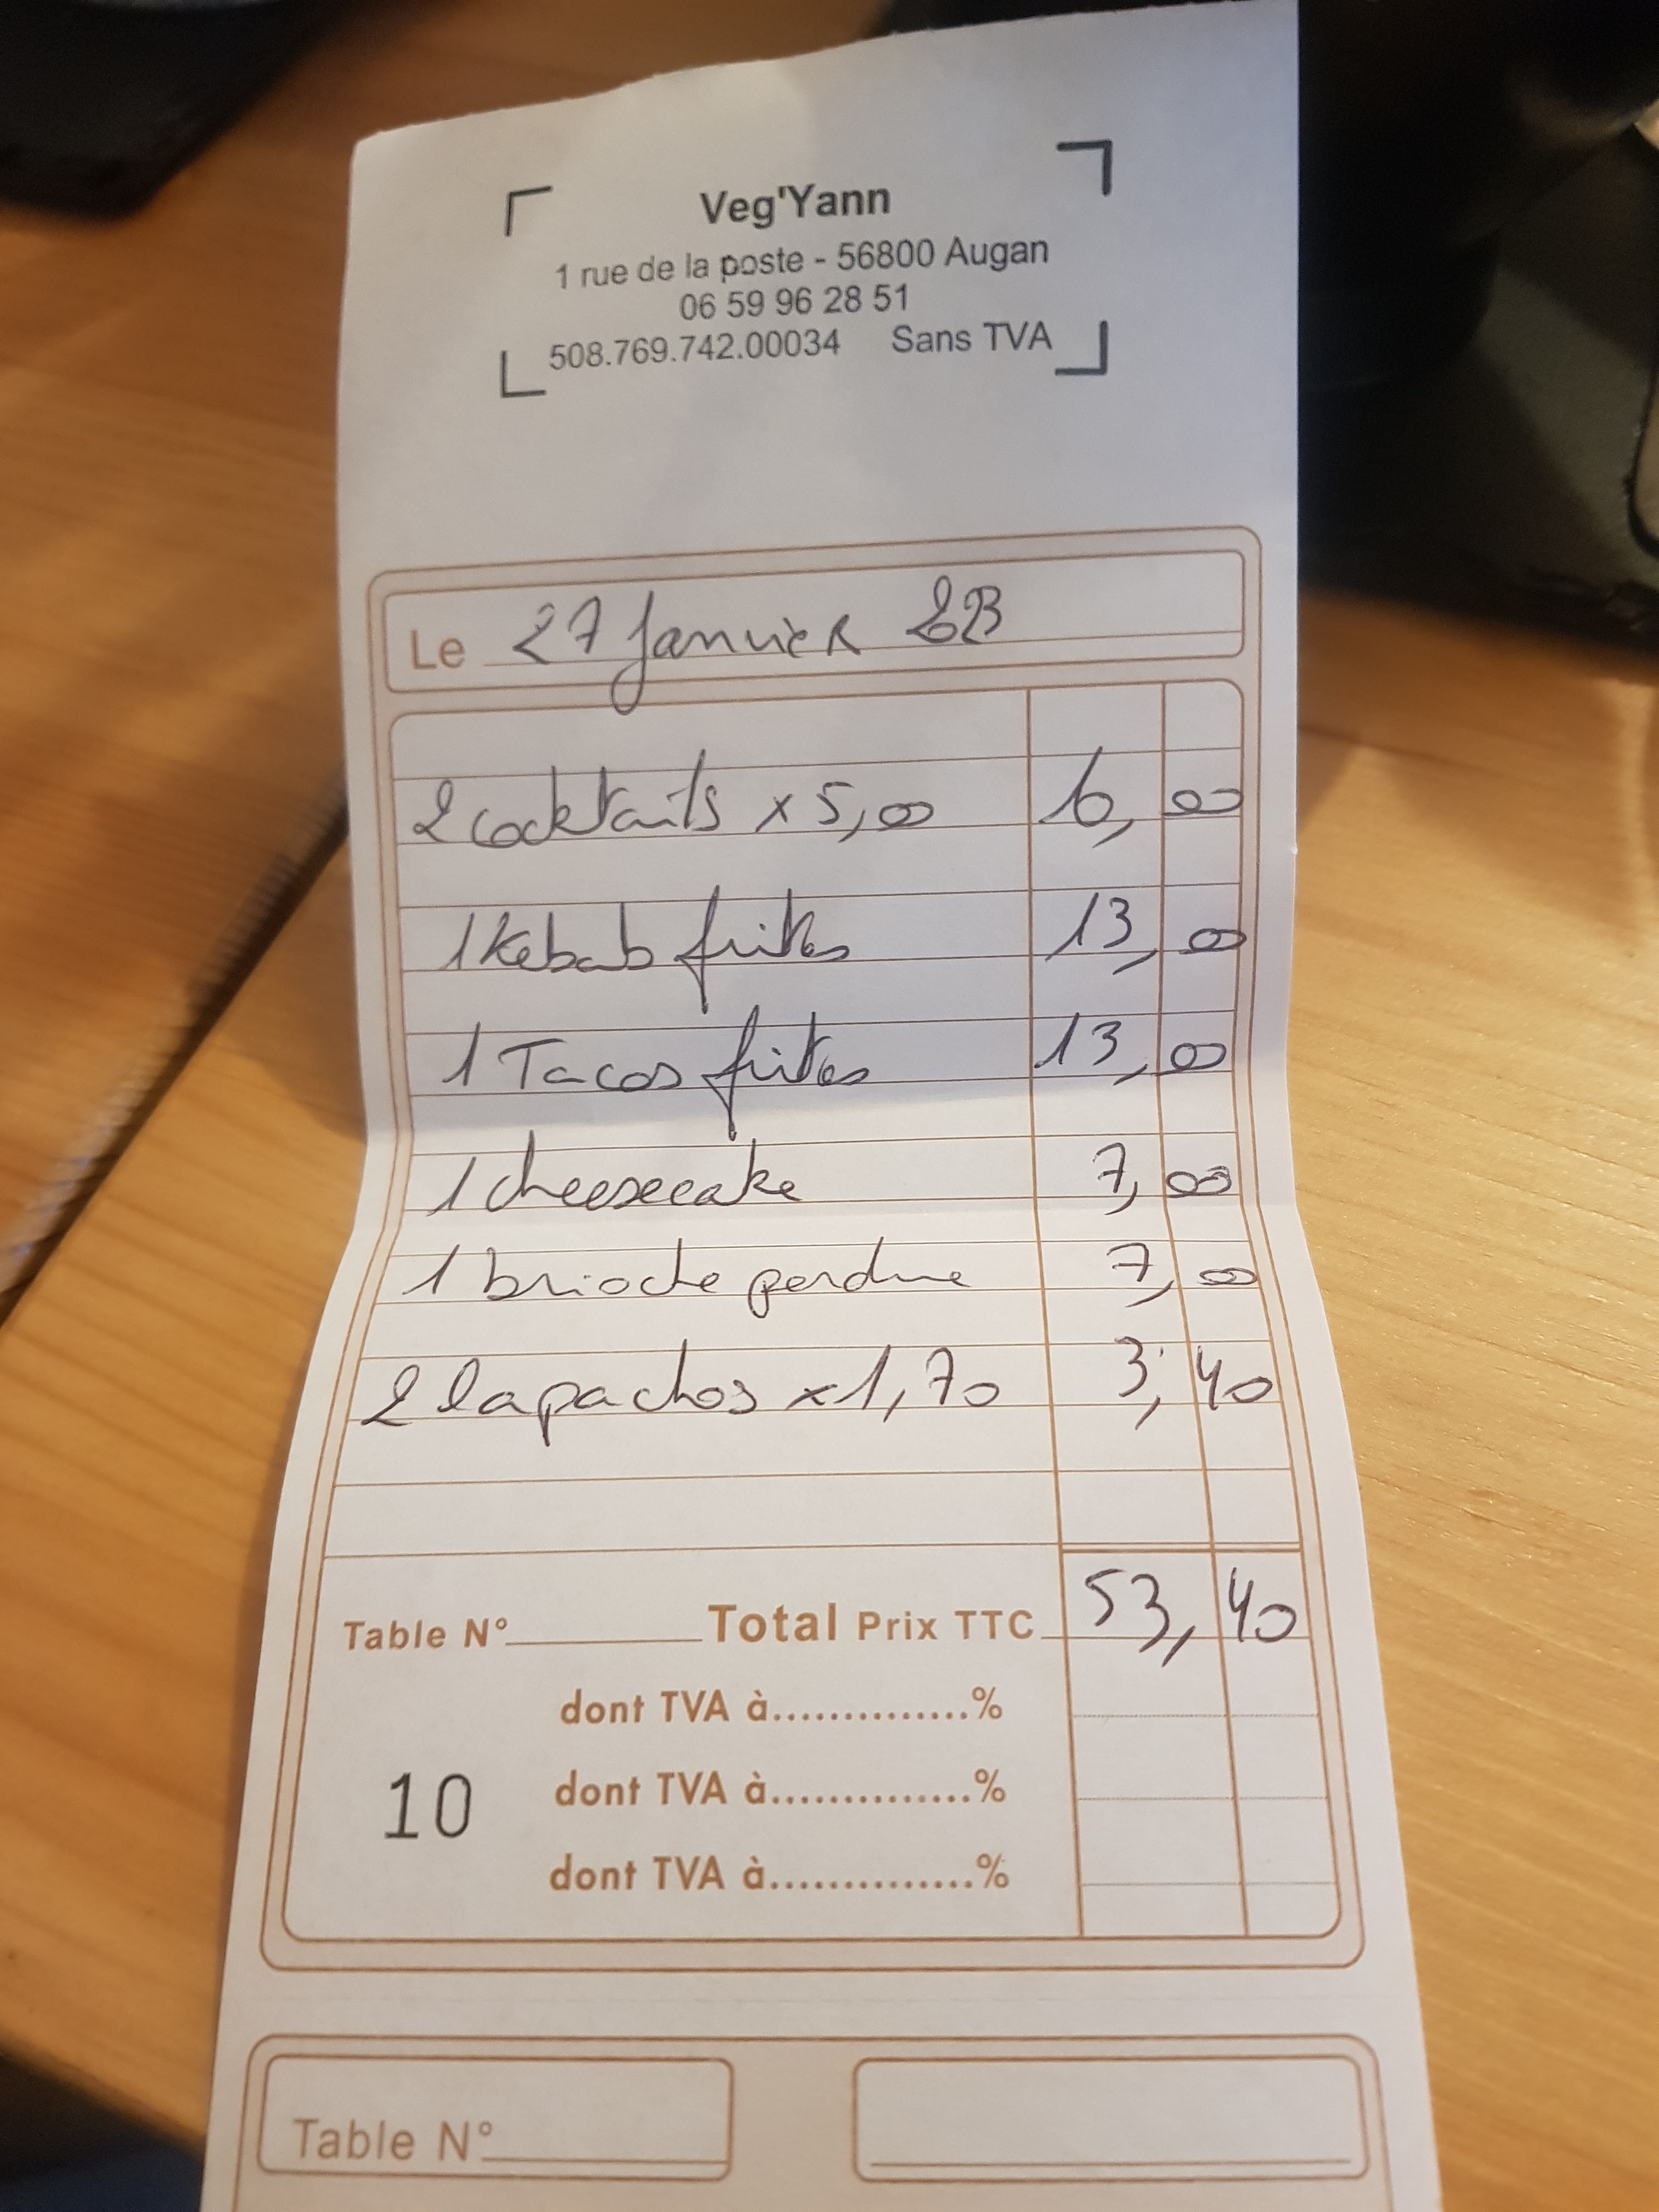 Veg'Yann
1 rue de la poste - 56800 Augan
06 59 96 28 51
508.769.742.00034 Sans TVA
Le 27 Janvier 23
2 cocktails x 5,00 10,00
1 Kebab frites 13,00
1 Tacos frites 13,00
1 cheesecake 7,00
1 brioche perdue 7,00
2 lapachos x 1,70 3,40
Table N° Total Prix TTC 53,40
dont TVA à..............%
10 dont TVA à..............%
dont TVA à..............%
Table N°